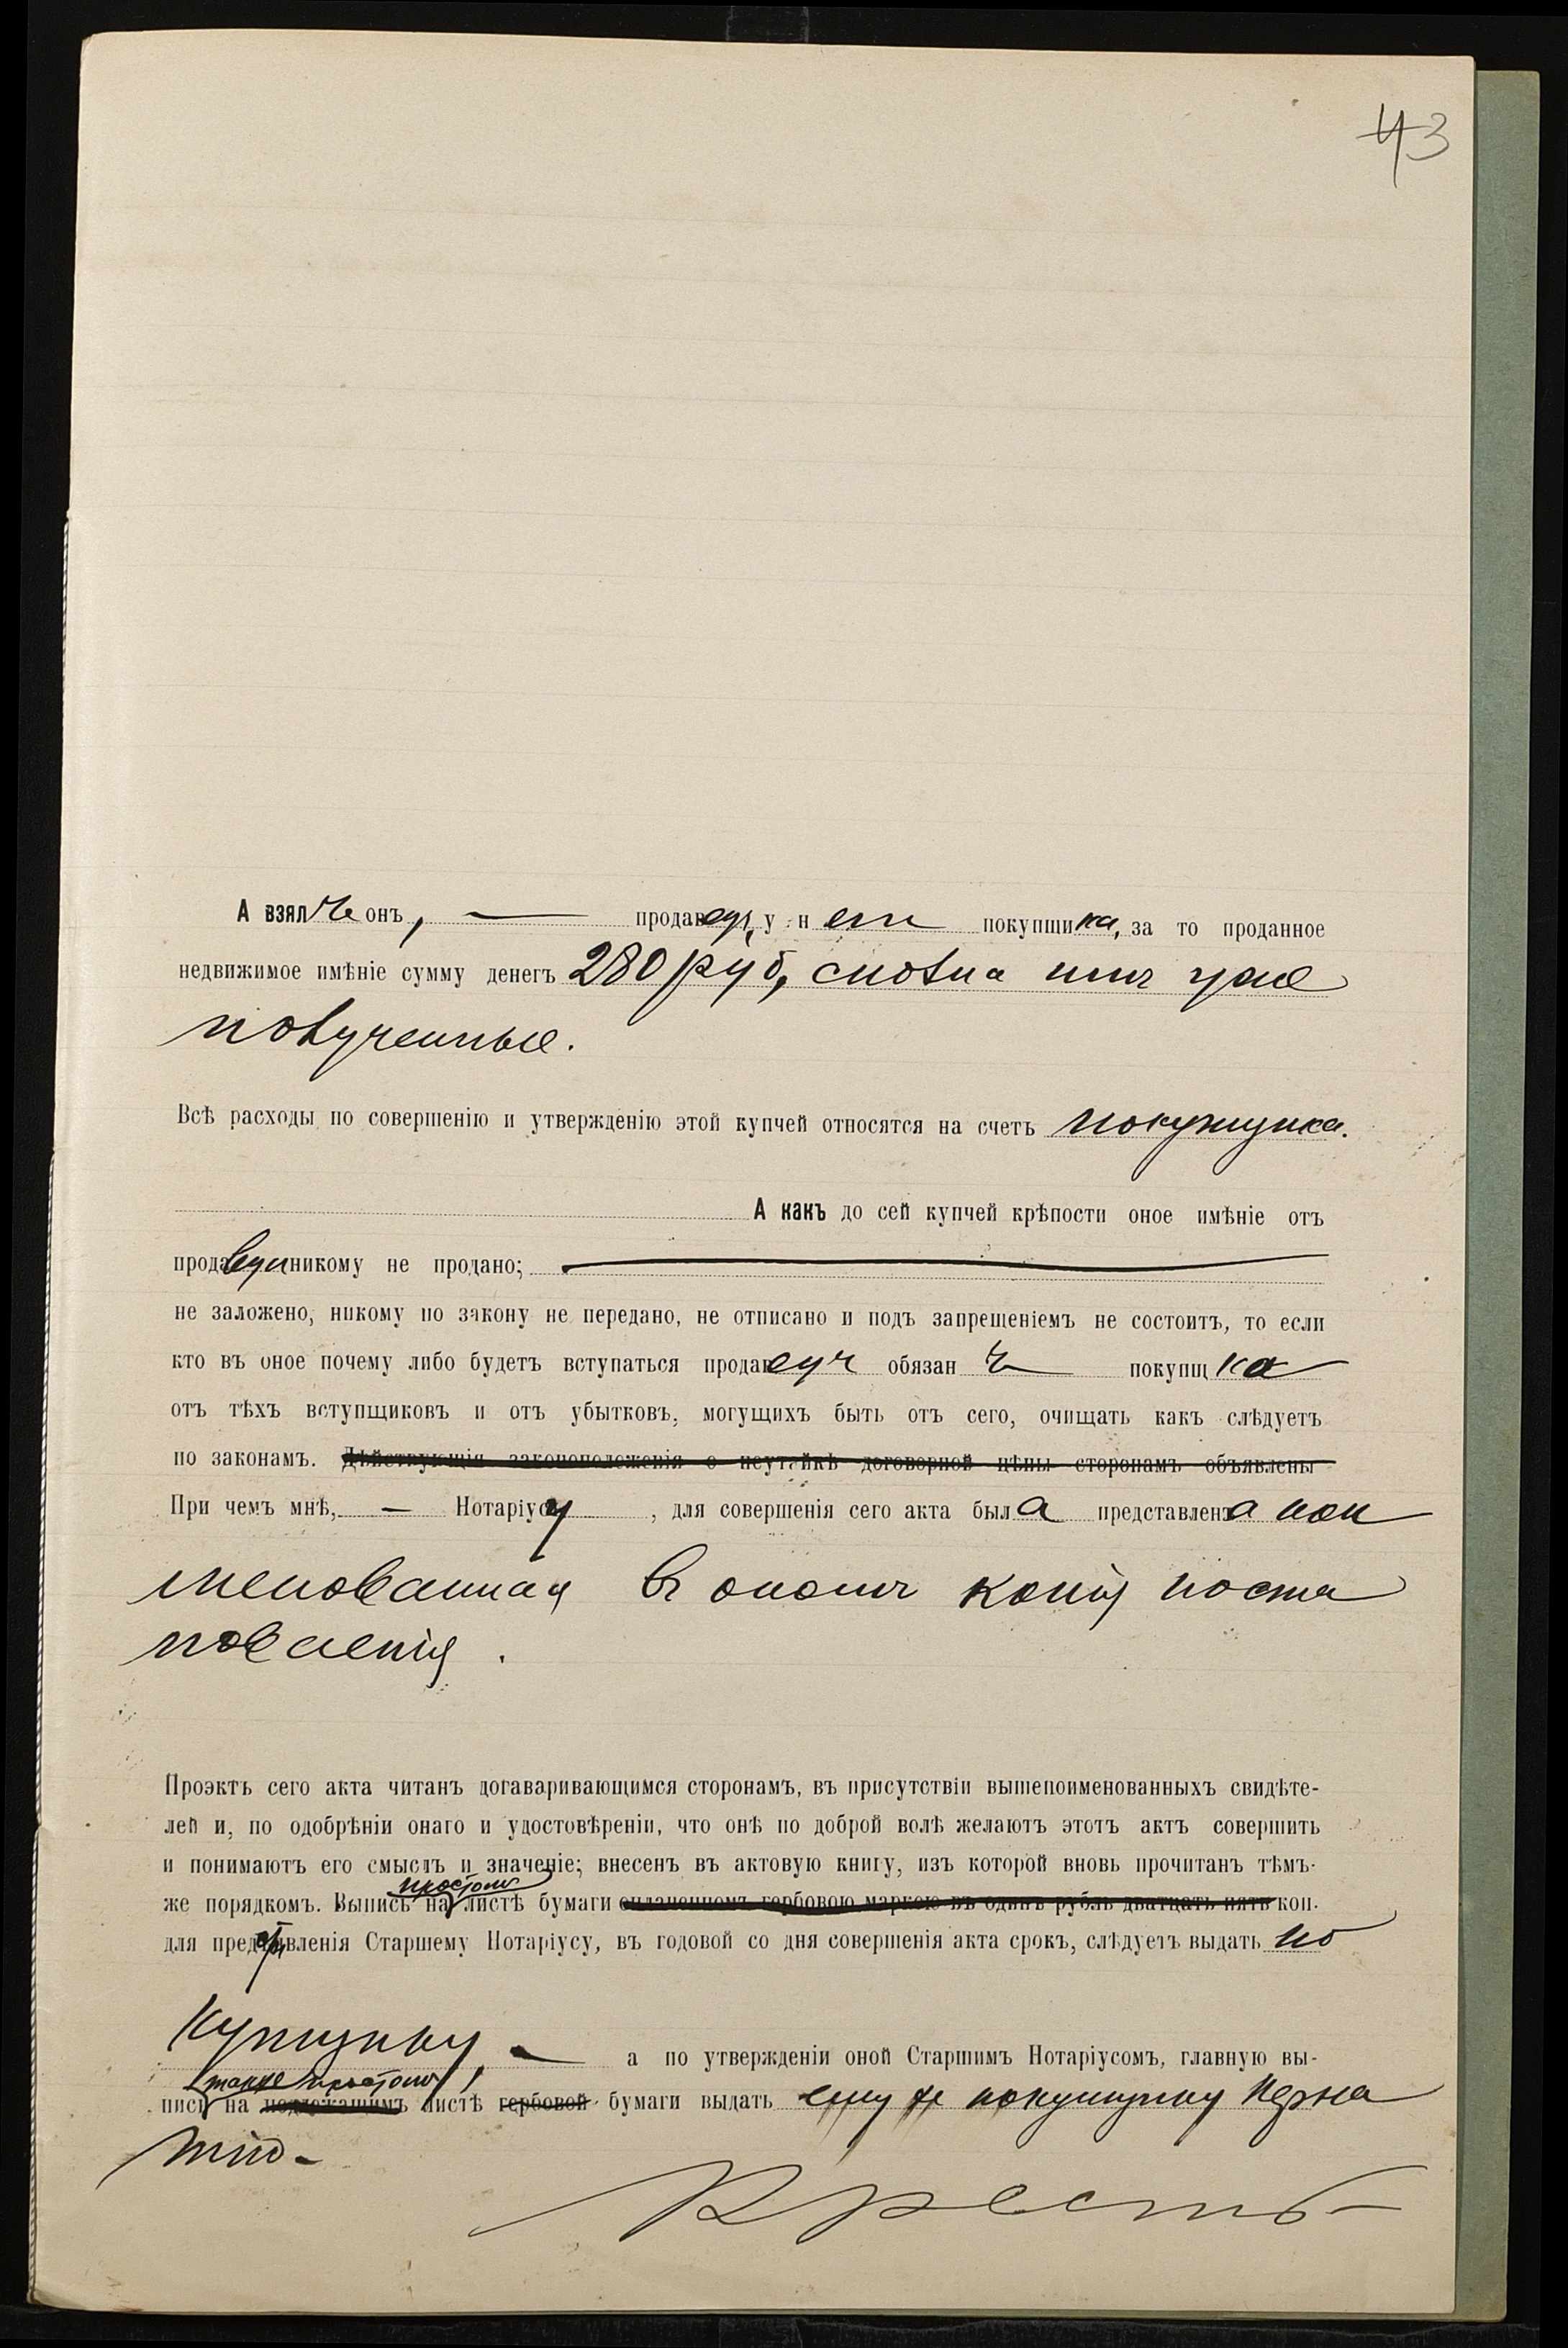 43
А взялъ онъ, — продавецъ, у него покупщика, за то проданное
недвижимое имѣніе сумму денегъ 280 руб, сполна имъ уже
полученные.
Всѣ расходы по совершенію и утвержденію этой купчей относятся на счетъ покупщика.
А какъ до сей купчей крѣпости оное имѣніе отъ
продавца никому не продано;
не заложено, никому по закону не передано, не отписано и подъ запрещеніемъ не состоитъ, то если
кто въ оное почему либо будетъ вступаться продавецъ обязанъ покупщка
отъ тѣхъ вступщиковъ и отъ убытковъ, могущихъ быть отъ сего, очищать какъ слѣдуетъ
по законамъ. Дѣйствующія законоположенія о неутайкѣ договорной цѣны сторонамъ объявлены
При чемъ мнѣ, — Нотаріусу, для совершенія сего акта была представлена пои
менованная въ ономъ копія поста
новленія.
Проэктъ сего акта читанъ догаваривающимся сторонамъ, въ присутствіи вышепоименованныхъ свидѣте-
лей и, по одобрѣніи онаго и удостовѣреніи, что онѣ по доброй волѣ желаютъ этотъ актъ совершить
и понимаютъ его смыслъ и значеніе; внесенъ въ актовую книгу, изъ которой вновь прочитанъ тѣмъ-
же порядкомъ. Выпись на простомъ листѣ бумаги оплаченномъ гербовою маркою въ одинъ рубль двадцать пять коп.
для представленія Старшему Нотаріусу, въ годовой со дня совершенія акта срокъ, слѣдуетъ выдать по
купщику, — а по утвержденіи оной Старшимъ Нотаріусомъ, главную вы-
пись на также простомъ подлежащимъ листѣ гербовой бумаги выдать ему же покупщику